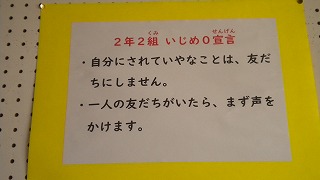 ２年２組 いじめ０宣言
くみ せんげん
・自分にされていやなことは、友だ
ちにしません。
・一人の友だちがいたら、まず声を
かけます。